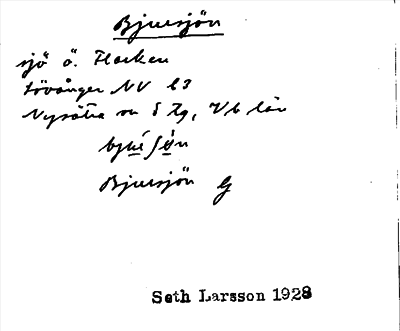 Bjursjön
sjö ö. Flarken
Lövånger NV b3
Nysätra sn S Tg, Vb län
Bjursjön G
Seth Larsson 1928